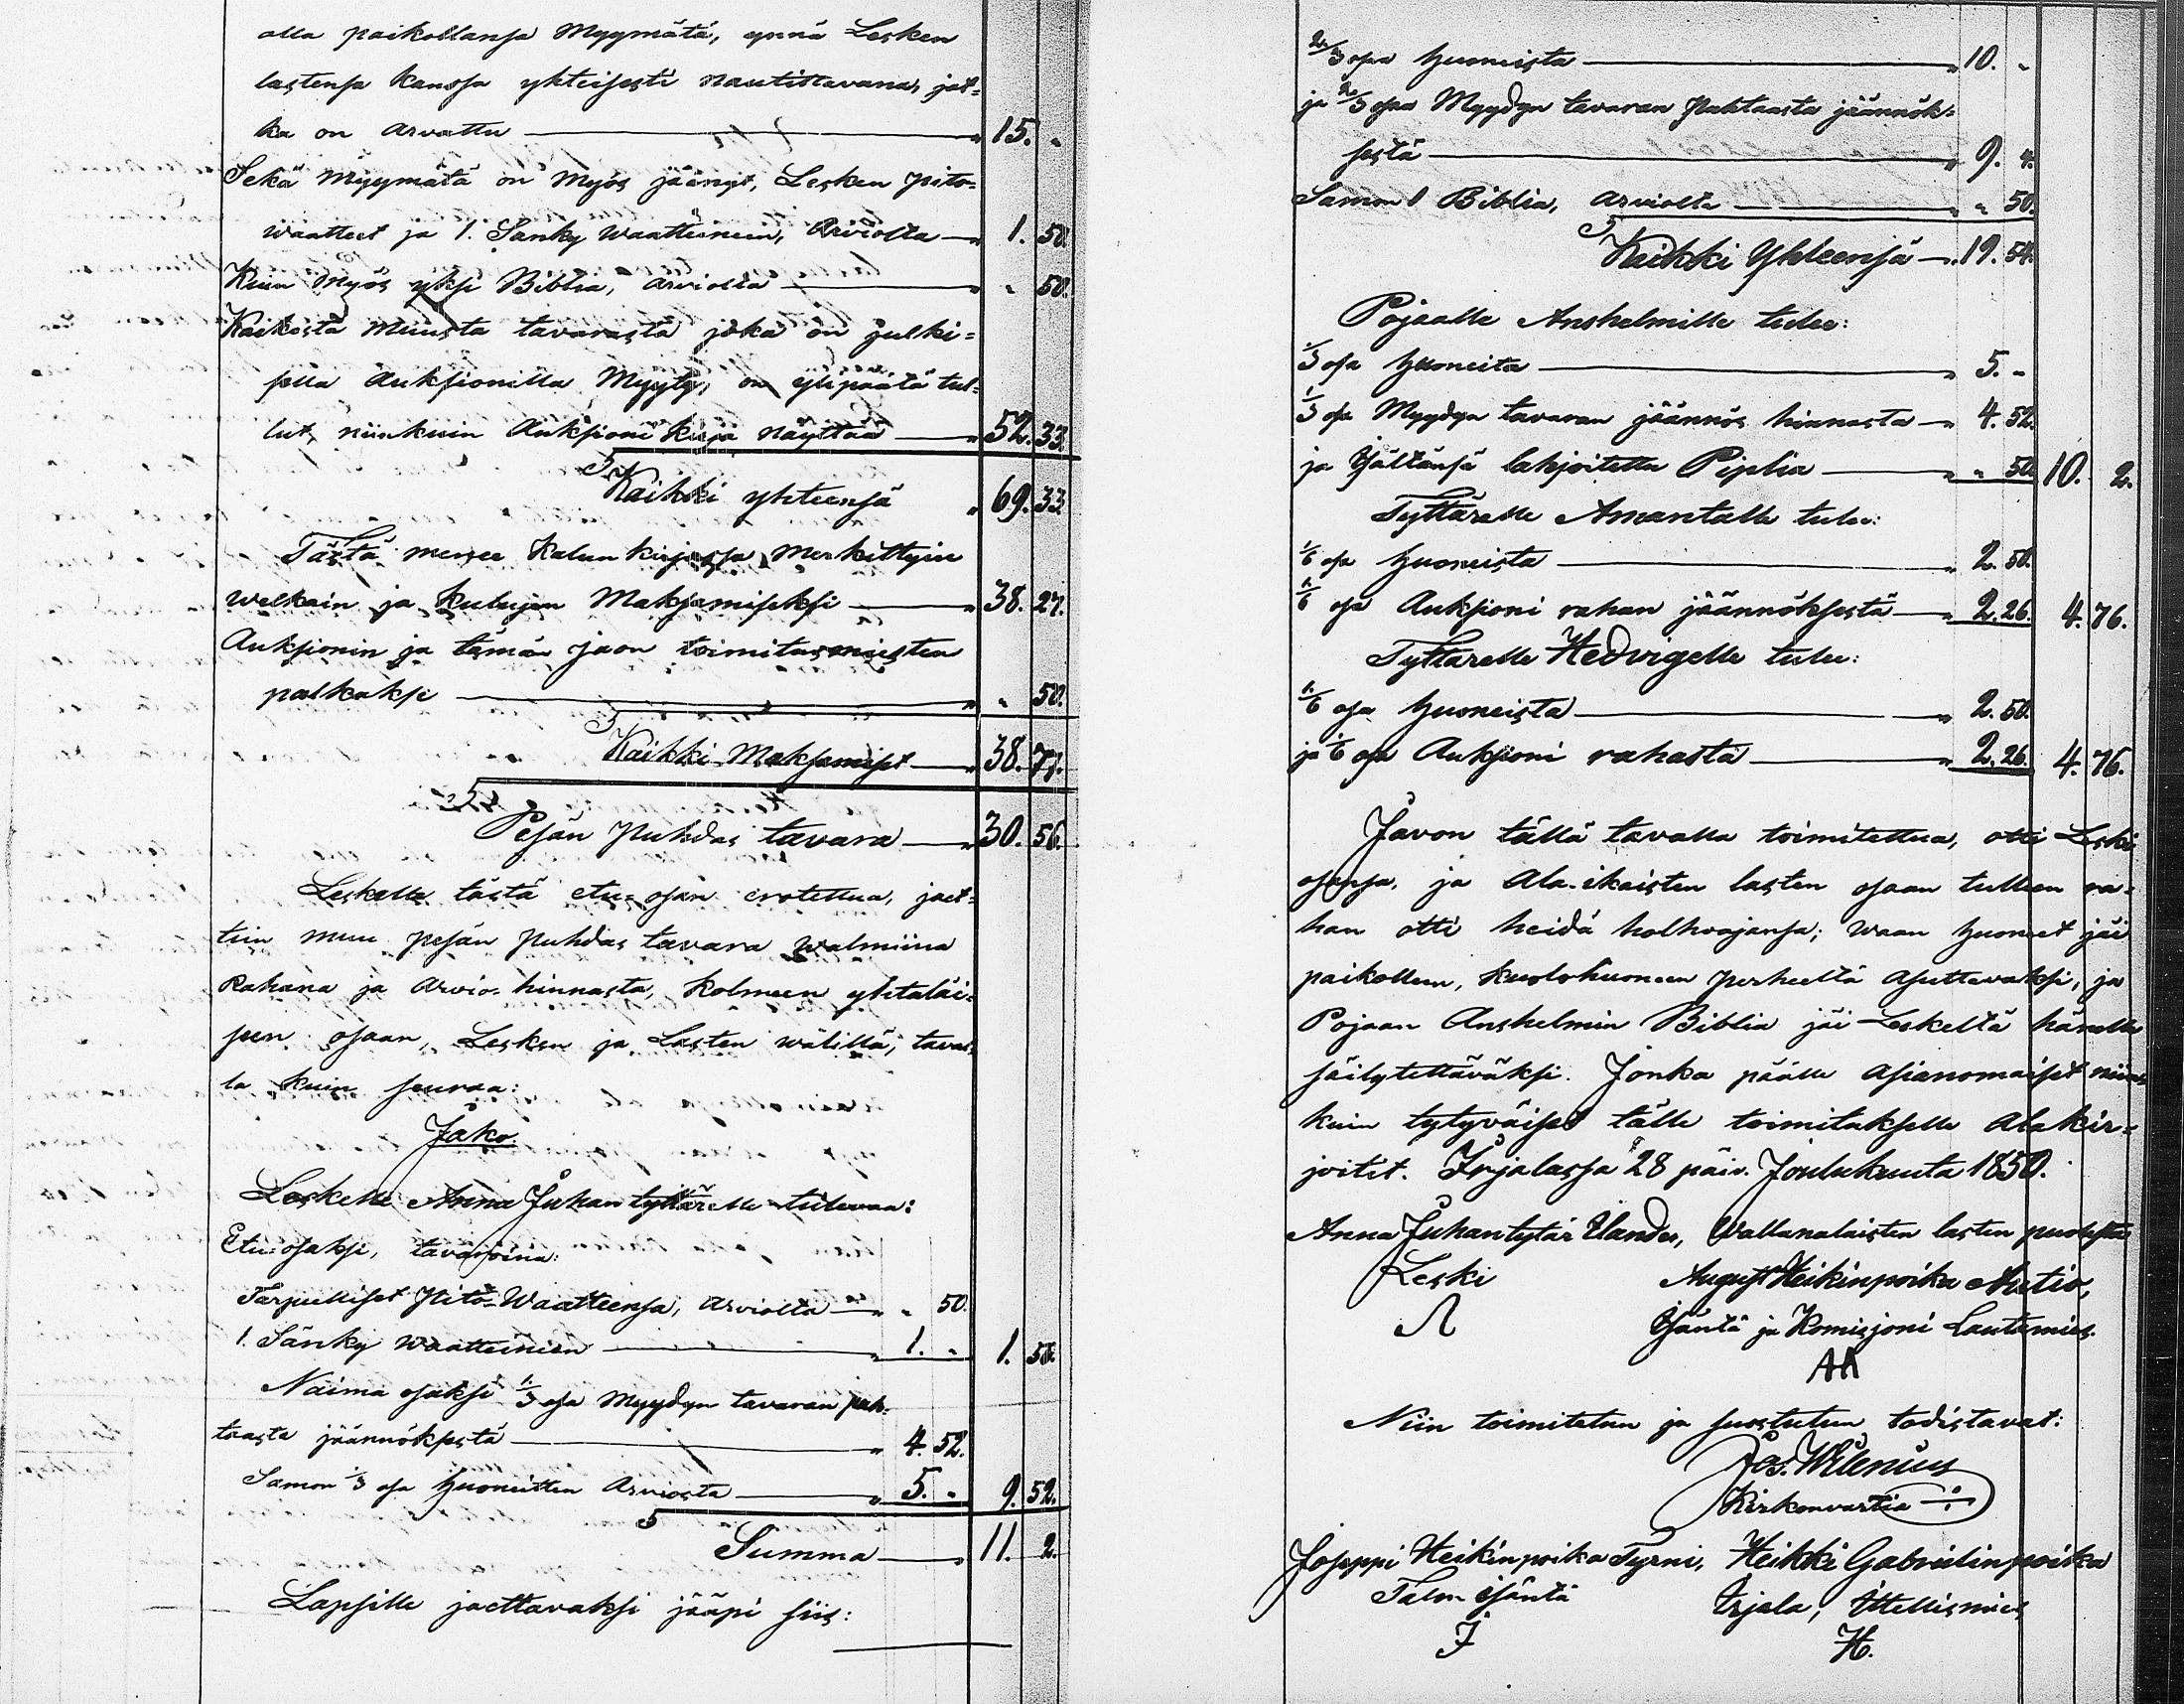 olla paikollansa Myymätä, ynnä Lesken
lastensa kanssa yhteisesti nautittavana, jot=
ka on arvattu — „ 15. „
Sekä Myymätä on Myös jäänyt, Lesken pito=
waatteet ja 1. Sänky waatteineen, Arviolta — „ 1. 50.
Kuin Myös yksi Biblia, arviolta — „ 50.
Kaikesta Muusta tavarasta joka on julki=
sella Auksionilla Myyty, on ylipäätä tul=
lut, niinkuin Auksioni kirja näyttää — „ 52. 33.
Kaikki yhteensä „ 69. 33.
Tästä menee Kalun kirjassa Merkittyin
welkain ja kulujen Maksamiseksi — „ 38. 27.
Auksionin ja tämän jaon toimitusmiesten
palkaksi — „ „ 50.
Kaikki Maksamiset — „ 38. 77.
Pesän Puhdas tavara — „ 30. 56.
Leskelle tästä etu-osan erotettua, jaet=
tiin muu pesän puhdas tavara walmiina
Rahana ja Arvio-hinnasta, kolmeen yhtäläi=
seen osaan, Lesken ja Lasten wälillä, taval=
la kuin seuraa:
Jako.
Leskelle Anna Juhantyttärelle tulevaa:
Etu-osaksi, tavaroina:
Tarpeelliset Pito-Waatteensa, arviolta — „ „ 50.
1. Sänky Waatteineen — „ 1. „ 1. 50.
Naima osaksi 1/3 osa Myydyn tavaran puh=
taasta jäännöksestä — „ 4. 52.
Samon 1/3 osa huoneitten Arviosta — „ 5. „ 9. 52.
Summa — „ 11. 2.
Lapsille jaettavaksi jääpi siis:
2/3 osa huoneista — „ 10. „
ja 2/3 osa Myydyn tavaran Puhtaasta jäännök=
sestä — „ 9. 4.
Samon 1 Biblia, arviolta — „ „ 50.
Kaikki Yhteensä — „ 19. 54.
Pojaalle Anshelmille tulee:
1/3 osa huoneita — „ 5. „
1/3 osa Myydyn tavaran jäännös hinnasta — „ 4. 52.
ja Isältänsä lahjoitettu Piplia — „ „ 50. 10. 2.
Tyttärelle Amantalle tulee:
1/6 osa huoneista — „ 2. 50.
1/6 osa Auksioni rahan jäännöksestä — „ 2. 26. 4. 76.
Tyttärelle Hedvigelle tulee:
1/6 osa huoneista — „ 2. 50.
ja 1/6 osa Auksioni rahasta — „ 2. 26. 4. 76.
Javon tällä tavalla toimitettua, otti Leski
osansa, ja Ala-ikäisten lasten osaan tulleen ra=
han otti heidä holhoojansa; waan huoneet jäi
paikolleen, kuolohuoneen perheeltä asuttavaksi, ja
Pojaan Anshelmin Biblia jäi Leskeltä hänelle
säilytettäväksi. Jonka päälle asianomaiset niin
kuin tytyväiset tälle toimitukselle alakir=
joitit. Irjalassa 28 päiv. Joulukuuta 1850.
Anna Juhantytär Ulander, Wallanalaisten lasten puolesta
Leski August Heikinpoika Autio,
Isäntä ja Komisjoni Lautamies.
AA
Niin toimitetun ja suostutun todistavat:
Jos. Wilenius
Kirkonvartia
Joseppi Heikinpoika Tyrni, Heikki Gabrielinpoika
Talon isäntä Irjala, Itellismies
J H.